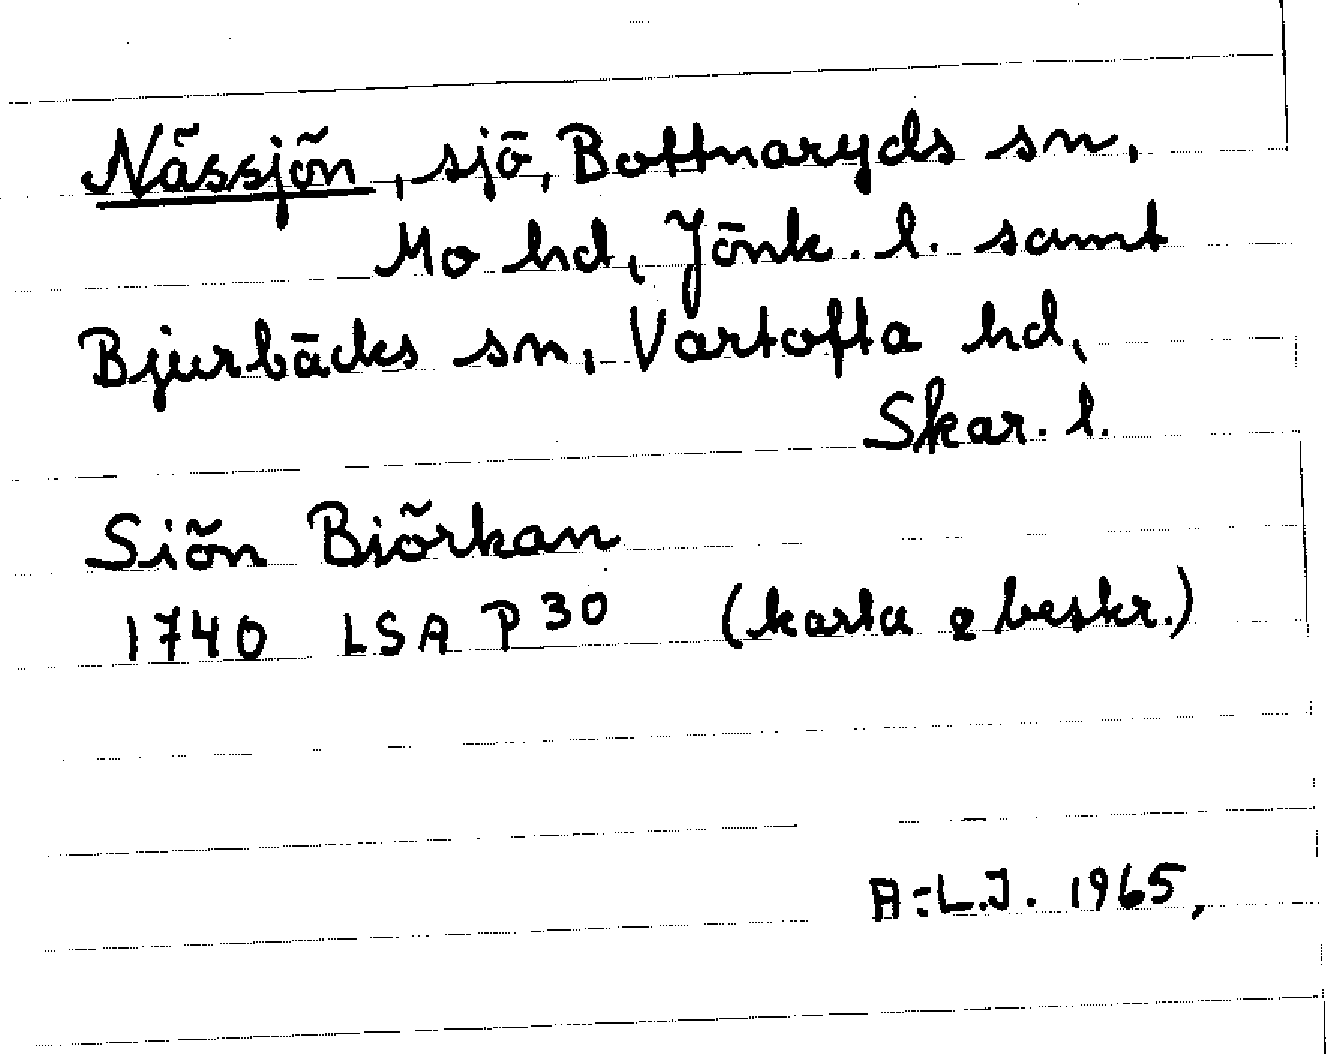 Nässjön, sjö, Bottnaryds sn,
Mo hd, Jönk. l. samt
Bjurbäcks sn, Vartofta hd,
Skar. l.
Siön Biörkan
1740 LSA P 30 (karta o beskr.)
A:L.J. 1965,